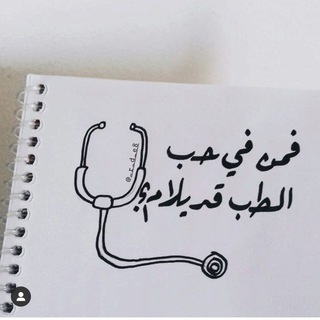 فمن في حب
الطب قد يلام؟!